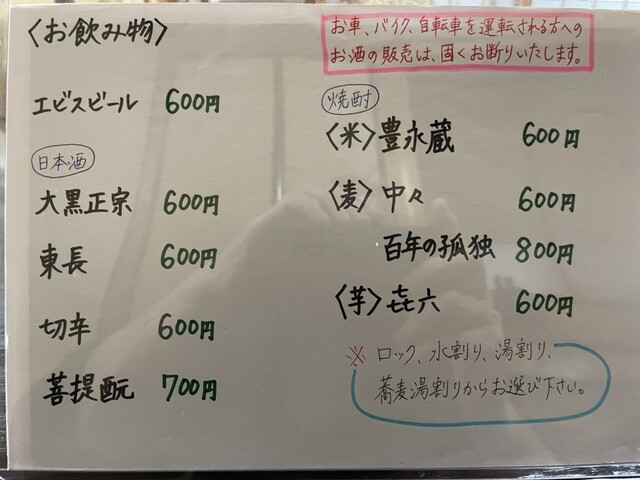 〈お飲み物〉
エビスビール 600円
日本酒
大黒正宗 600円
東長 600円
切辛 600円
菩提酛 700円
お車、バイク、自転車を運転される方への
お酒の販売は、固くお断りいたします。
焼酎
〈米〉豊永蔵 600円
〈麦〉中々 600円
百年の孤独 800円
〈芋〉㐂六 600円
※ ロック、水割り、湯割り、
蕎麦湯割りからお選び下さい。